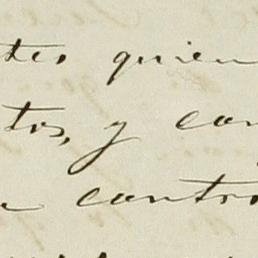 tes quien
tos, y con
a contra